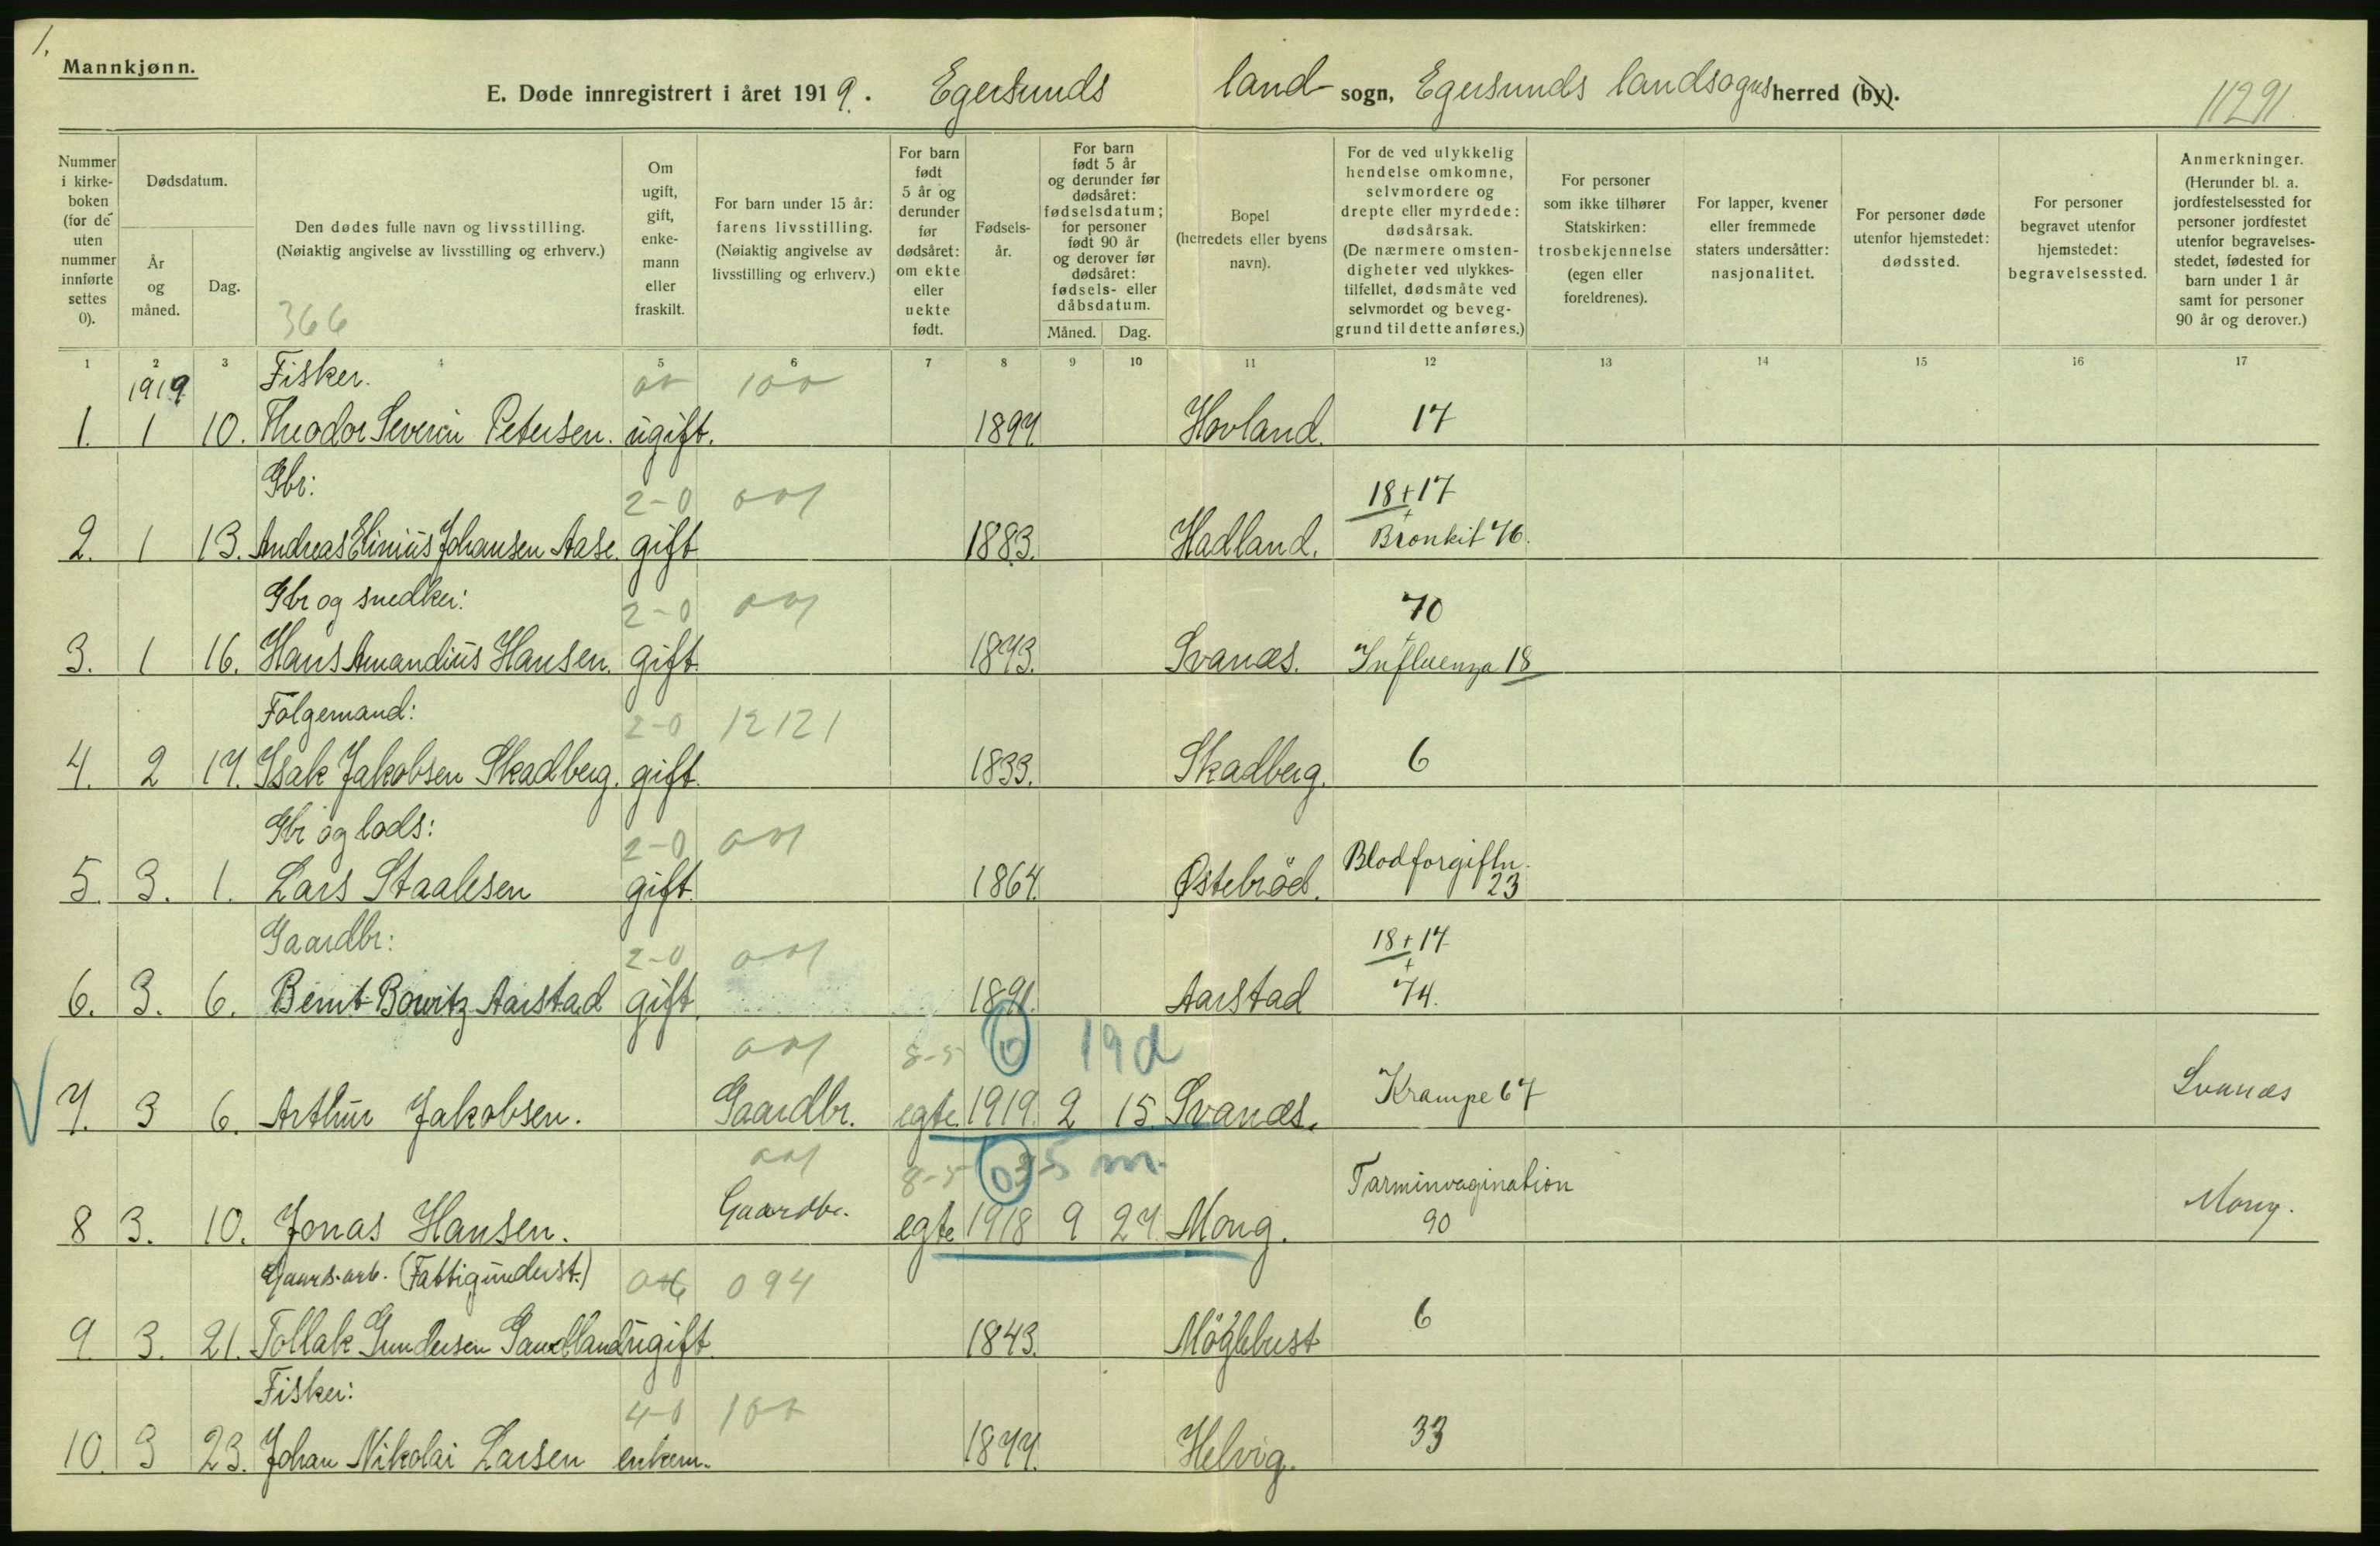 1.
Mannkjønn.
E. Døde innregistrert i året 1919. Egersunds land- sogn, Egersunds landsogns herred (by).
11291
Nummer i kirkeboken (for de uten nummer innførte settes 0).
Dødsdatum.
År og måned.
Dag.
Den dødes fulle navn og livsstilling.
(Nøiaktig angivelse av livsstilling og erhverv.)
366
Om ugift, gift, enkemann eller fraskilt.
For barn under 15 år: farens livsstilling. (Nøiaktig angivelse av livsstilling og erhverv.)
For barn født 5 år og derunder før dødsåret: om ekte eller uekte født.
Fødselsår.
For barn født 5 år og derunder før dødsåret: fødselsdatum; for personer født 90 år og derover før dødsåret: fødsels- eller dåbsdatum.
Måned. Dag.
Bopel (herredets eller byens navn).
For de ved ulykkelig hendelse omkomne, selvmordere og drepte eller myrdede: dødsårsak. (De nærmere omstendigheter ved ulykkestilfellet, dødsmåte ved selvmordet og beveggrund til dette anføres.)
For personer som ikke tilhører Statskirken: trosbekjennelse (egen eller foreldrenes).
For lapper, kvener eller fremmede staters undersåtter: nasjonalitet.
For personer døde utenfor hjemstedet: dødssted.
For personer begravet utenfor hjemstedet: begravelsessted.
Anmerkninger. (Herunder bl. a. jordfestelsessted for personer jordfestet utenfor begravelsesstedet, fødested for barn under 1 år samt for personer 90 år og derover.)
1 2 3 4 5 6 7 8 9 10 11 12 13 14 15 16 17
1919 Fisker. 100
1. 1 10. Theodor Severin Petersen. ugift. 1897. Hovland. 17
Gbr: 2-0 001 18+17
2. 1 13. Andreas Elinius Johansen Aase. gift 1883. Hadland. + Bronkit 76.
Gbr og snedker: 2-0 001 70
3. 1 16. Hans Amandius Hansen. gift. 1873. Svanæs. + Influenza 18
Følgemand: 2-0 12121
4. 2 17. Isak Jakobsen Skadberg. gift. 1833. Skadberg. 6
Gbr og lods: 2-0 001
5. 3. 1. Lars Staalesen gift. 1864. Østebröd. Blodforgiftn. 23
Gaardbr: 2-0 001 18+17
6. 3. 6. Bernt Bowitz Aarstad gift. 1891. Aarstad + 74.
001 8-5 0 19 d
7. 3 6. Arthur Jakobsen. Gaardbr. egte. 1919. 2 15. Svanæs. Krampe 67 Svanæs
001 8-5 0 5 m.
8 3. 10. Jonas Hansen. Gaardbr. egte 1918 9 27. Mong. Tarminvagination 90 Mong.
Gaards.arb. (Fattigunderst.) 094
9. 3. 21. Tollak Gundersen Gaudland ugift 1843. Möglebust 6
Fisker: 4-0 100
10. 3 23. Johan Nikolai Larsen enkem. 1877. Helvig. 33